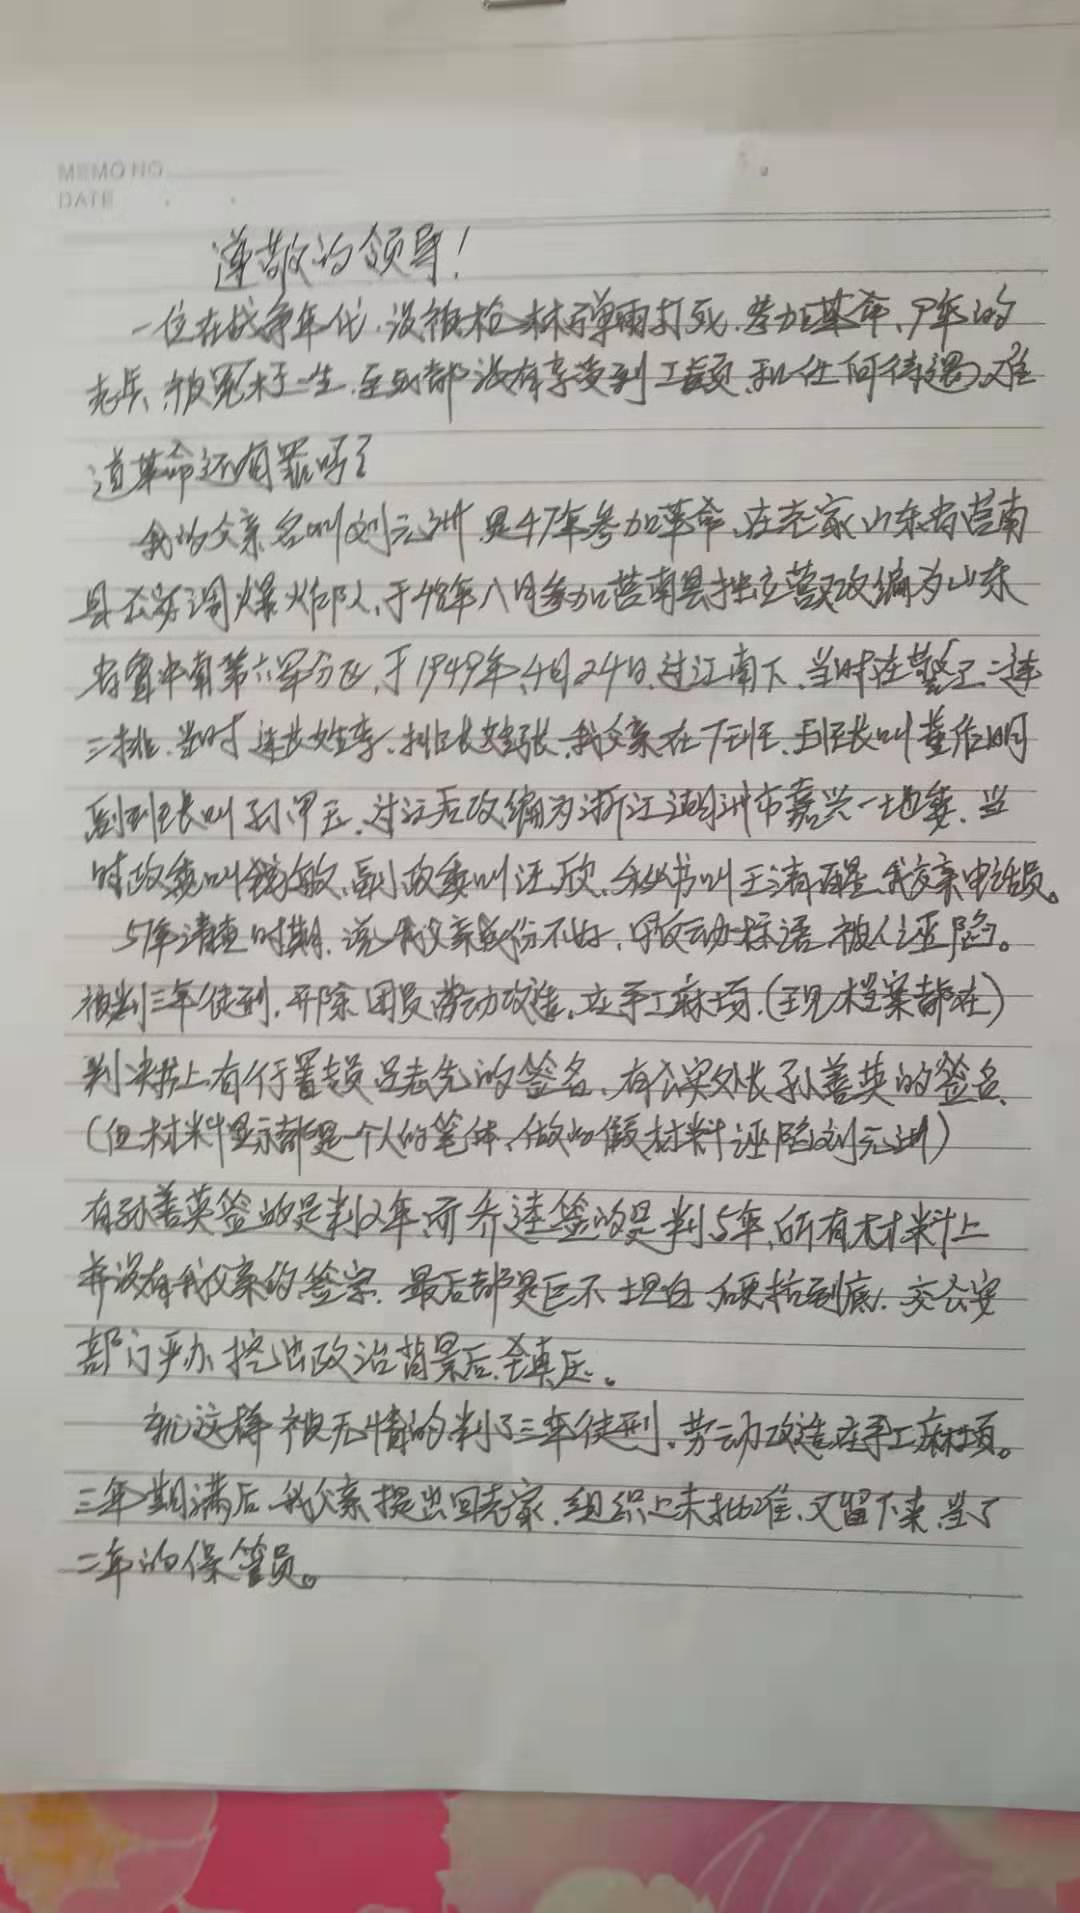 MEMO NO
DATE
尊敬的领导！
一位在战争年代，没被枪林弹雨打死，参加革命、9年的
老兵、被冤枉一生，至死都没有享受到工龄和任何待遇，难
道革命还有罪吗？
我的父亲名叫刘元洲，是47年参加革命，在老家山东省莒南
县 爆炸队，于48年八月参加莒南县独立营改编为山东
省鲁中南第六军分区，于1949年、4月24日、过江南下、当时在警卫二连
三排，当时连长姓李、排长姓张，我父亲在7班、班长叫董作明
副班长叫孙 玉，过江后改编为浙江 洲市嘉兴一地委，当
时政委叫钱敏，副政委叫汪欣，秘书叫王清 我父亲电话员。
51年清查时期，说我父亲成份不好，写反动标语被人诬陷。
被判三年徒刑，开除团员劳动改造，在手工麻场，（至现档案都在）
判决书上有行署专员吕志先的签名、有公安处长孙善英的签名，
（但材料显示都是一个人的笔体、做的假材料诬陷刘元洲）
有孙善英签的是判2年，而乔 签的是判5年，所有材料上
并没有我父亲的签字，最后都是拒不坦白，硬抗到底，交公安
部门严办，挖出政治背景后，予镇压。
就这样被无情的判了三年徒刑，劳动改造在手工麻场。
三年期满后，我父亲提出回老家，组织上未批准，又留下来，当了
二年的保管员。